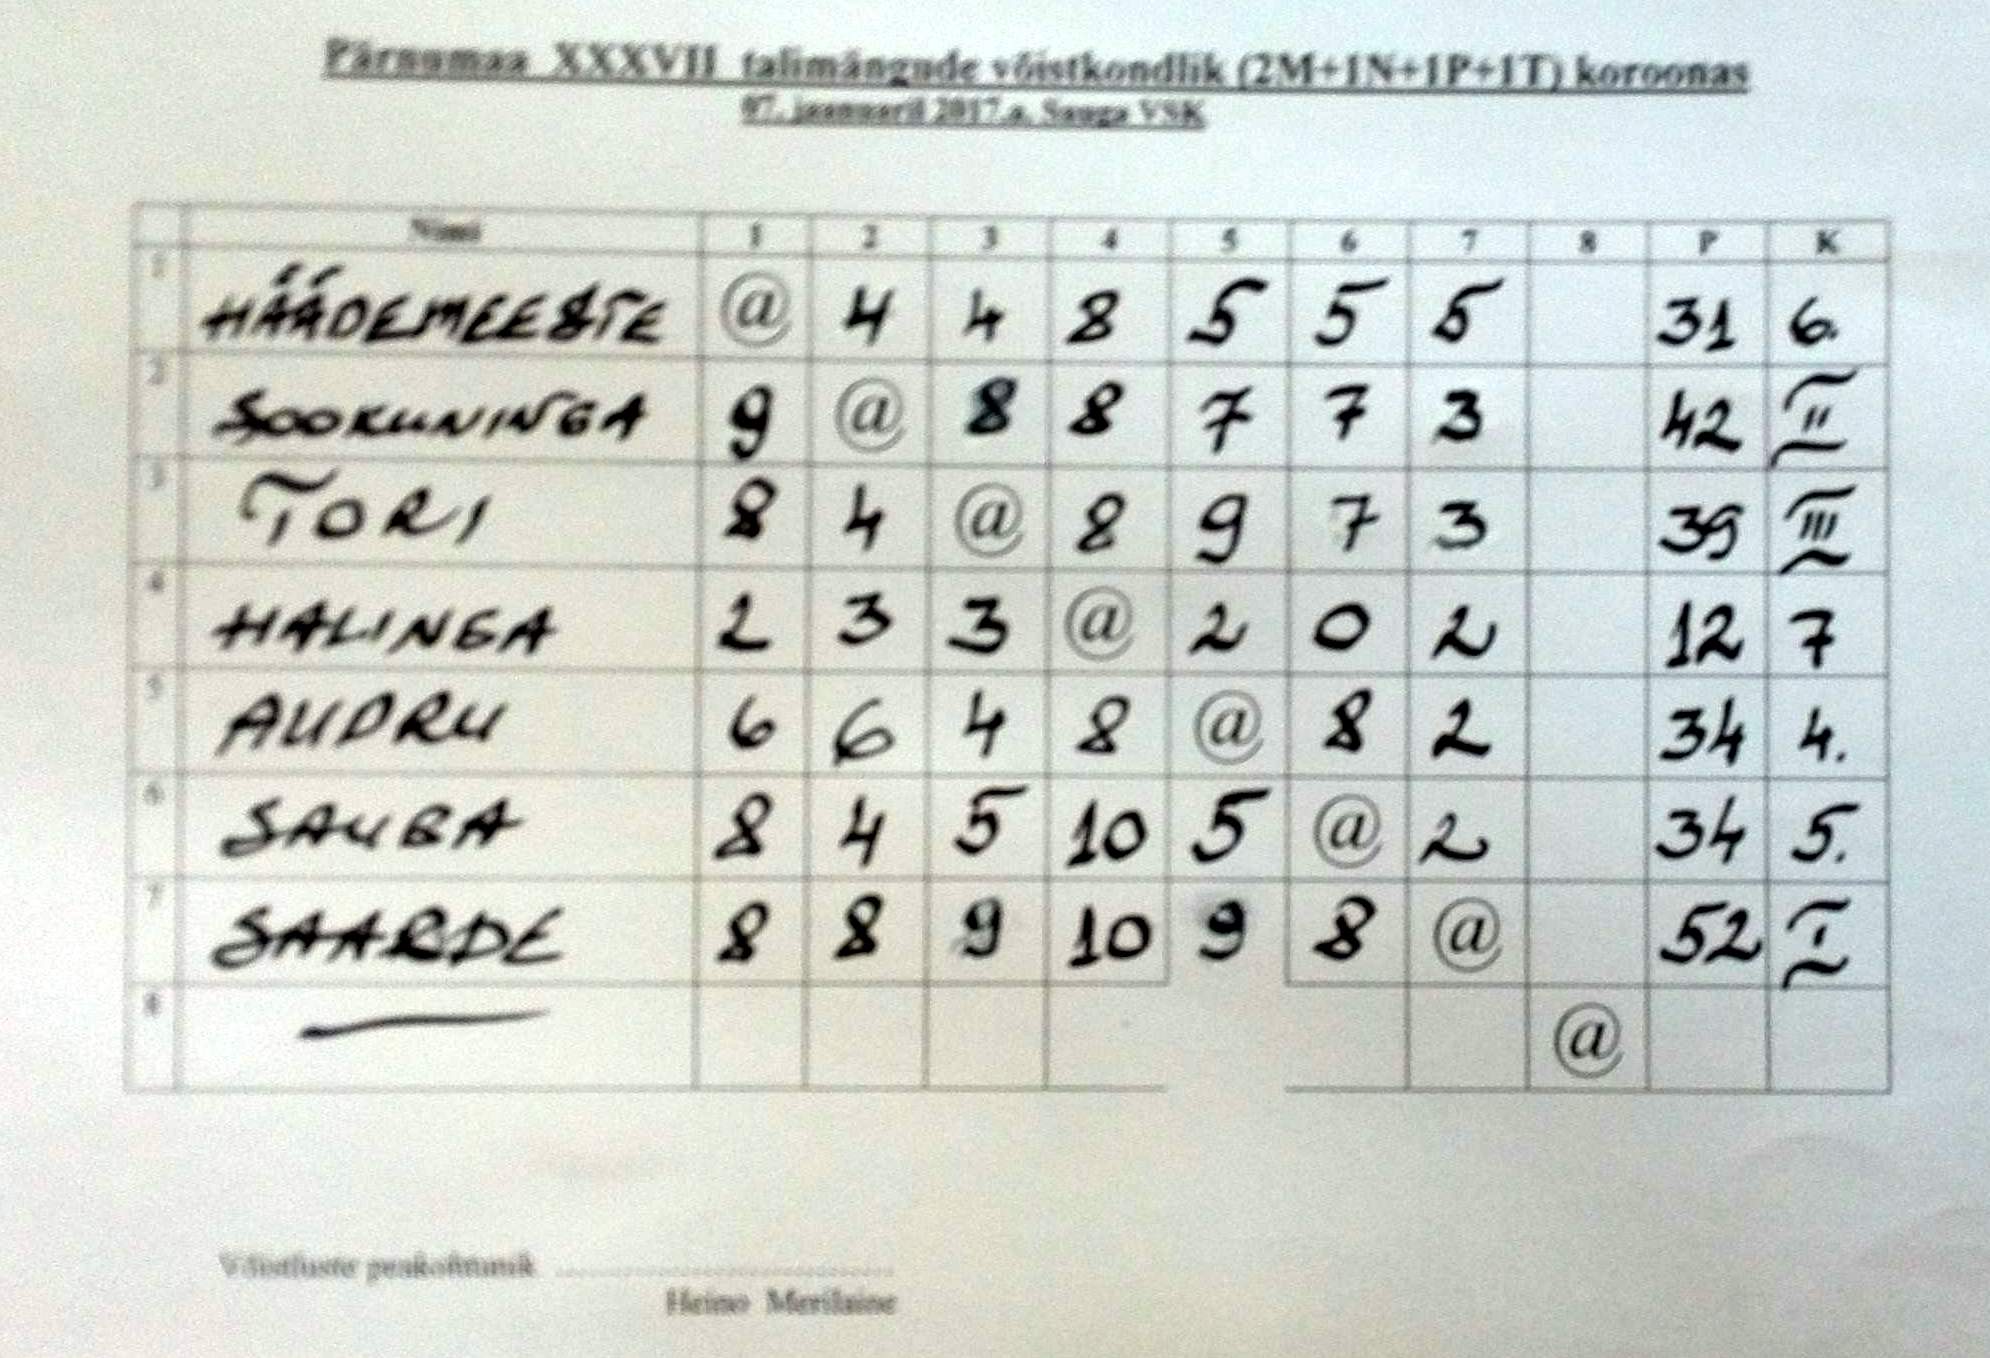 Pärnumaa XXXVII talimängude võistkondlik (2M+1N+1P+1T) koroonas
07. jaanuaril 2017.a. Sauga VSK
Nimi 1 2 3 4 5 6 7 8 P K
1 HÄÄDEMEESTE @ 4 4 8 5 5 5 31 6.
2 SOOKUNINGA 9 @ 8 8 7 7 3 42 II
3 TORI 8 4 @ 8 9 7 3 39 III
4 HALINGA 2 3 3 @ 2 0 2 12 7
5 AUDRU 6 6 4 8 @ 8 2 34 4.
6 SAUGA 8 4 5 10 5 @ 2 34 5.
7 SAARDE 8 8 9 10 9 8 @ 52 I
8 @
Võistluste peakohtunik ........................................
Heino Merilaine